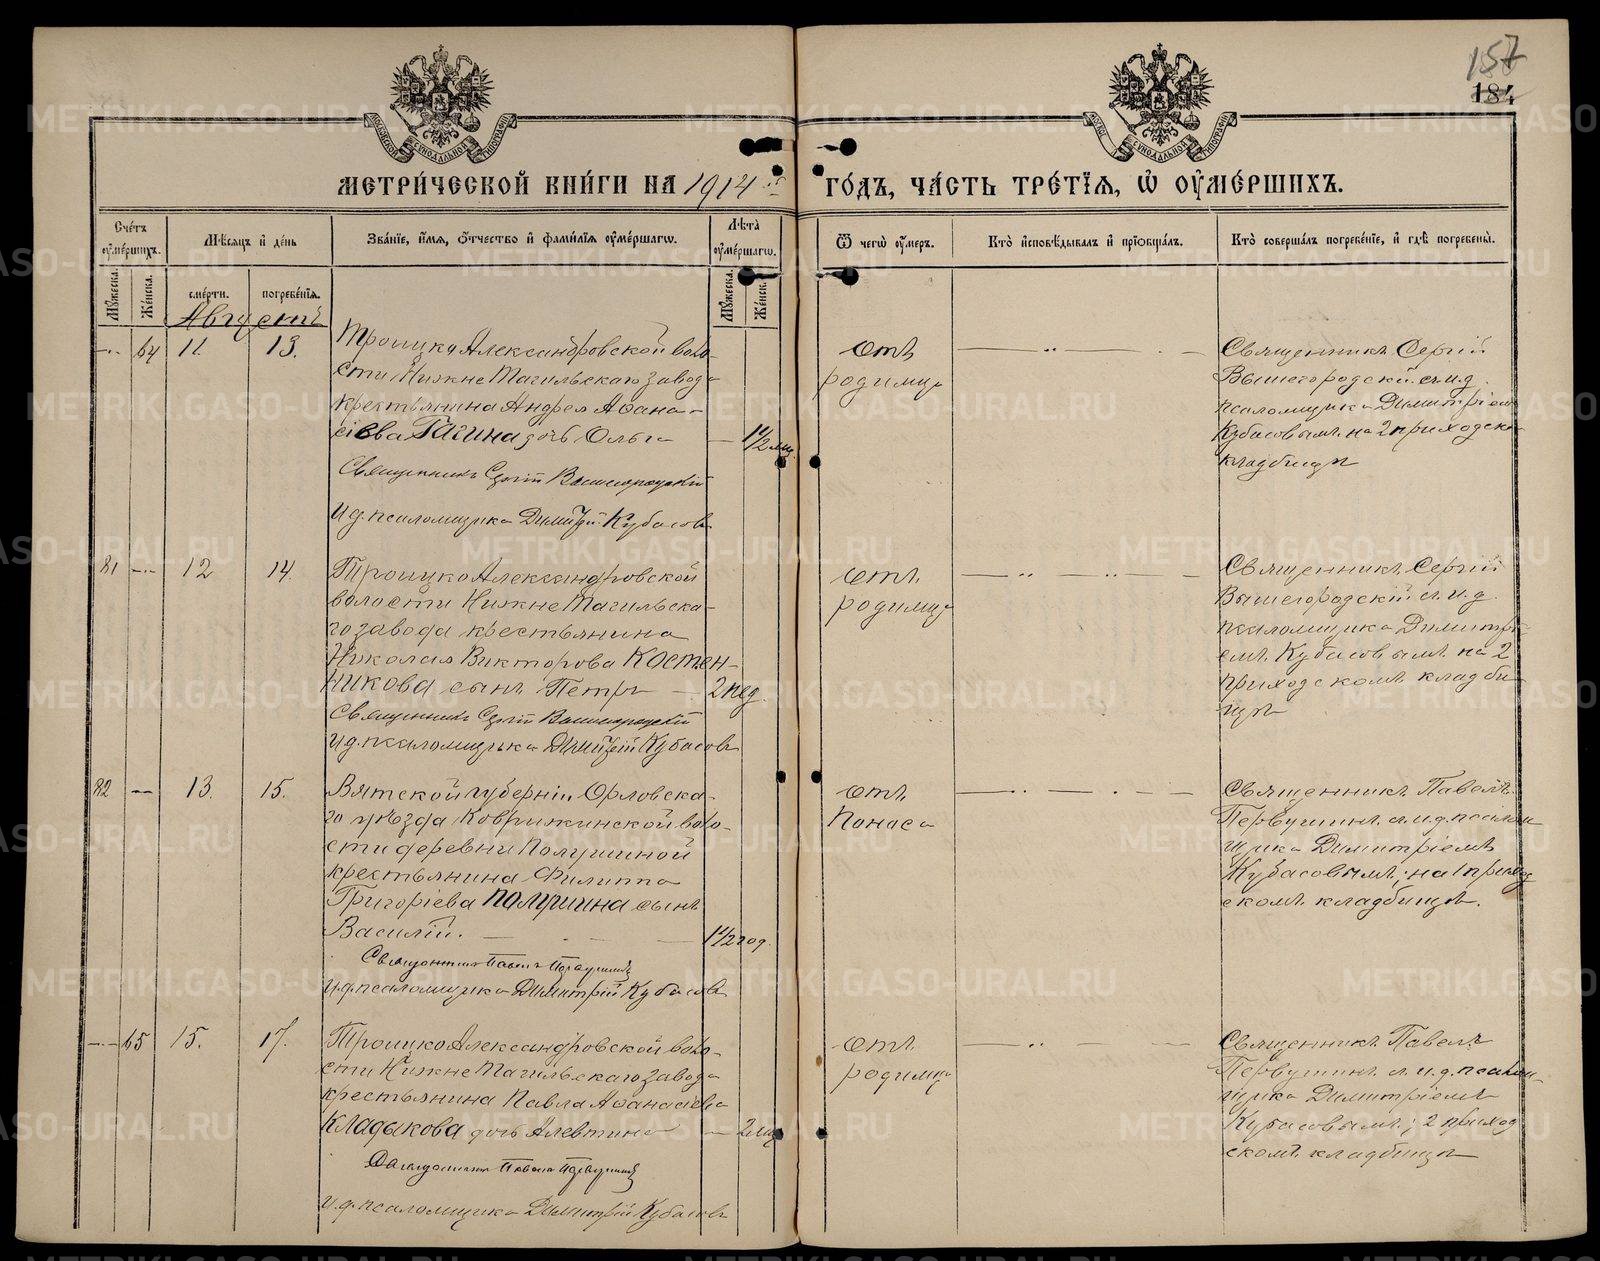 157
184
МОСКОВСКОЙ СѴНОДАЛЬНОЙ ТИПОГРАФІИ
МОСКОВ. СѴНОДАЛЬНОЙ ТИПОГРАФІИ
МЕТРИ́ЧЕСКОЙ КНИ́ГИ НА 1914 й ГО́ДЪ, ЧА́СТЬ ТРЕ́ТІѦ, Ѽ ОУ҆МЕ́РШИХЪ.
Сче́тъ оу҆ме́ршихъ.
Мѣ́сѧцъ и҆ де́нь
Зва́нїе, и҆́мѧ, ѻ҆́тчество и҆ фами́лїѧ оу҆ме́ршагѡ.
Лѣ́та оу҆ме́ршагѡ.
Ѿ чегѡ̀ оу҆́меръ.
Кто̀ и҆сповѣ́дывалъ и҆ прїѡбща́лъ.
Кто̀ соверша́лъ погребе́нїе, и҆ гдѣ̀ погребены̀.
Мꙋ́жеска.
Же́нска.
сме́рти.
погребе́нїѧ.
Мꙋ́жеска.
Же́нск.
Августъ
64 11. 13.
Троицко Александровской воло-
сти Нижне Тагильскаго завода
крестьянина Андрея Афана-
сіева Гагина дочь Ольга — 1 1/2 мц.
Священникъ Сергій Вышегородскій
И.д. псаломщика Димитрій Кубасовъ
отъ
родимца
Священникъ Сергій
Вышегородскій съ и.д.
псаломщика Димитріемъ
Кубасовымъ на 2 приходско
кладбищѣ
81 12 14.
Троицко Александровской
волости Нижне Тагильска-
го завода крестьянина
Николая Викторова Костен-
никова сынъ Петръ — 2 нед.
Священникъ Сергій Вышегородскій
И.д. псаломщика Димитрій Кубасовъ
отъ
родимца
Священникъ Сергій
Вышегородскій съ и.д.
псаломщика Димитрі-
емъ Кубасовымъ на 2
приходскомъ кладби-
щѣ
82 — 13. 15.
Вятской губерніи Орловска-
го уѣзда Коврижинской воло-
сти деревни Полушиной
крестьянина Филиппа
Григоріева Полушина сынъ
Василій. 1 1/2 год.
Священникъ Павелъ Первушинъ
И.д. псаломщика Димитрій Кубасовъ
отъ
поноса
Священникъ Павелъ
Первушинъ съ и.д. псалом
щика Димитріемъ
Кубасовымъ; на 1 приход
скомъ кладбищѣ.
65 15. 17.
Троицко Александровской воло-
сти Нижне Тагильскаго завода
крестьянина Павла Афанасіева
Кладыкова дочь Алевтина — 2 мц
Священникъ Павелъ Первушинъ
И.д. псаломщика Димитрій Кубасовъ
отъ
родимца
Священникъ Павелъ
Первушинъ съ и.д. псалом-
щика Димитріемъ
Кубасовымъ; 2 приход
скомъ кладбищѣ
METRIKI.GASO-URAL.RU